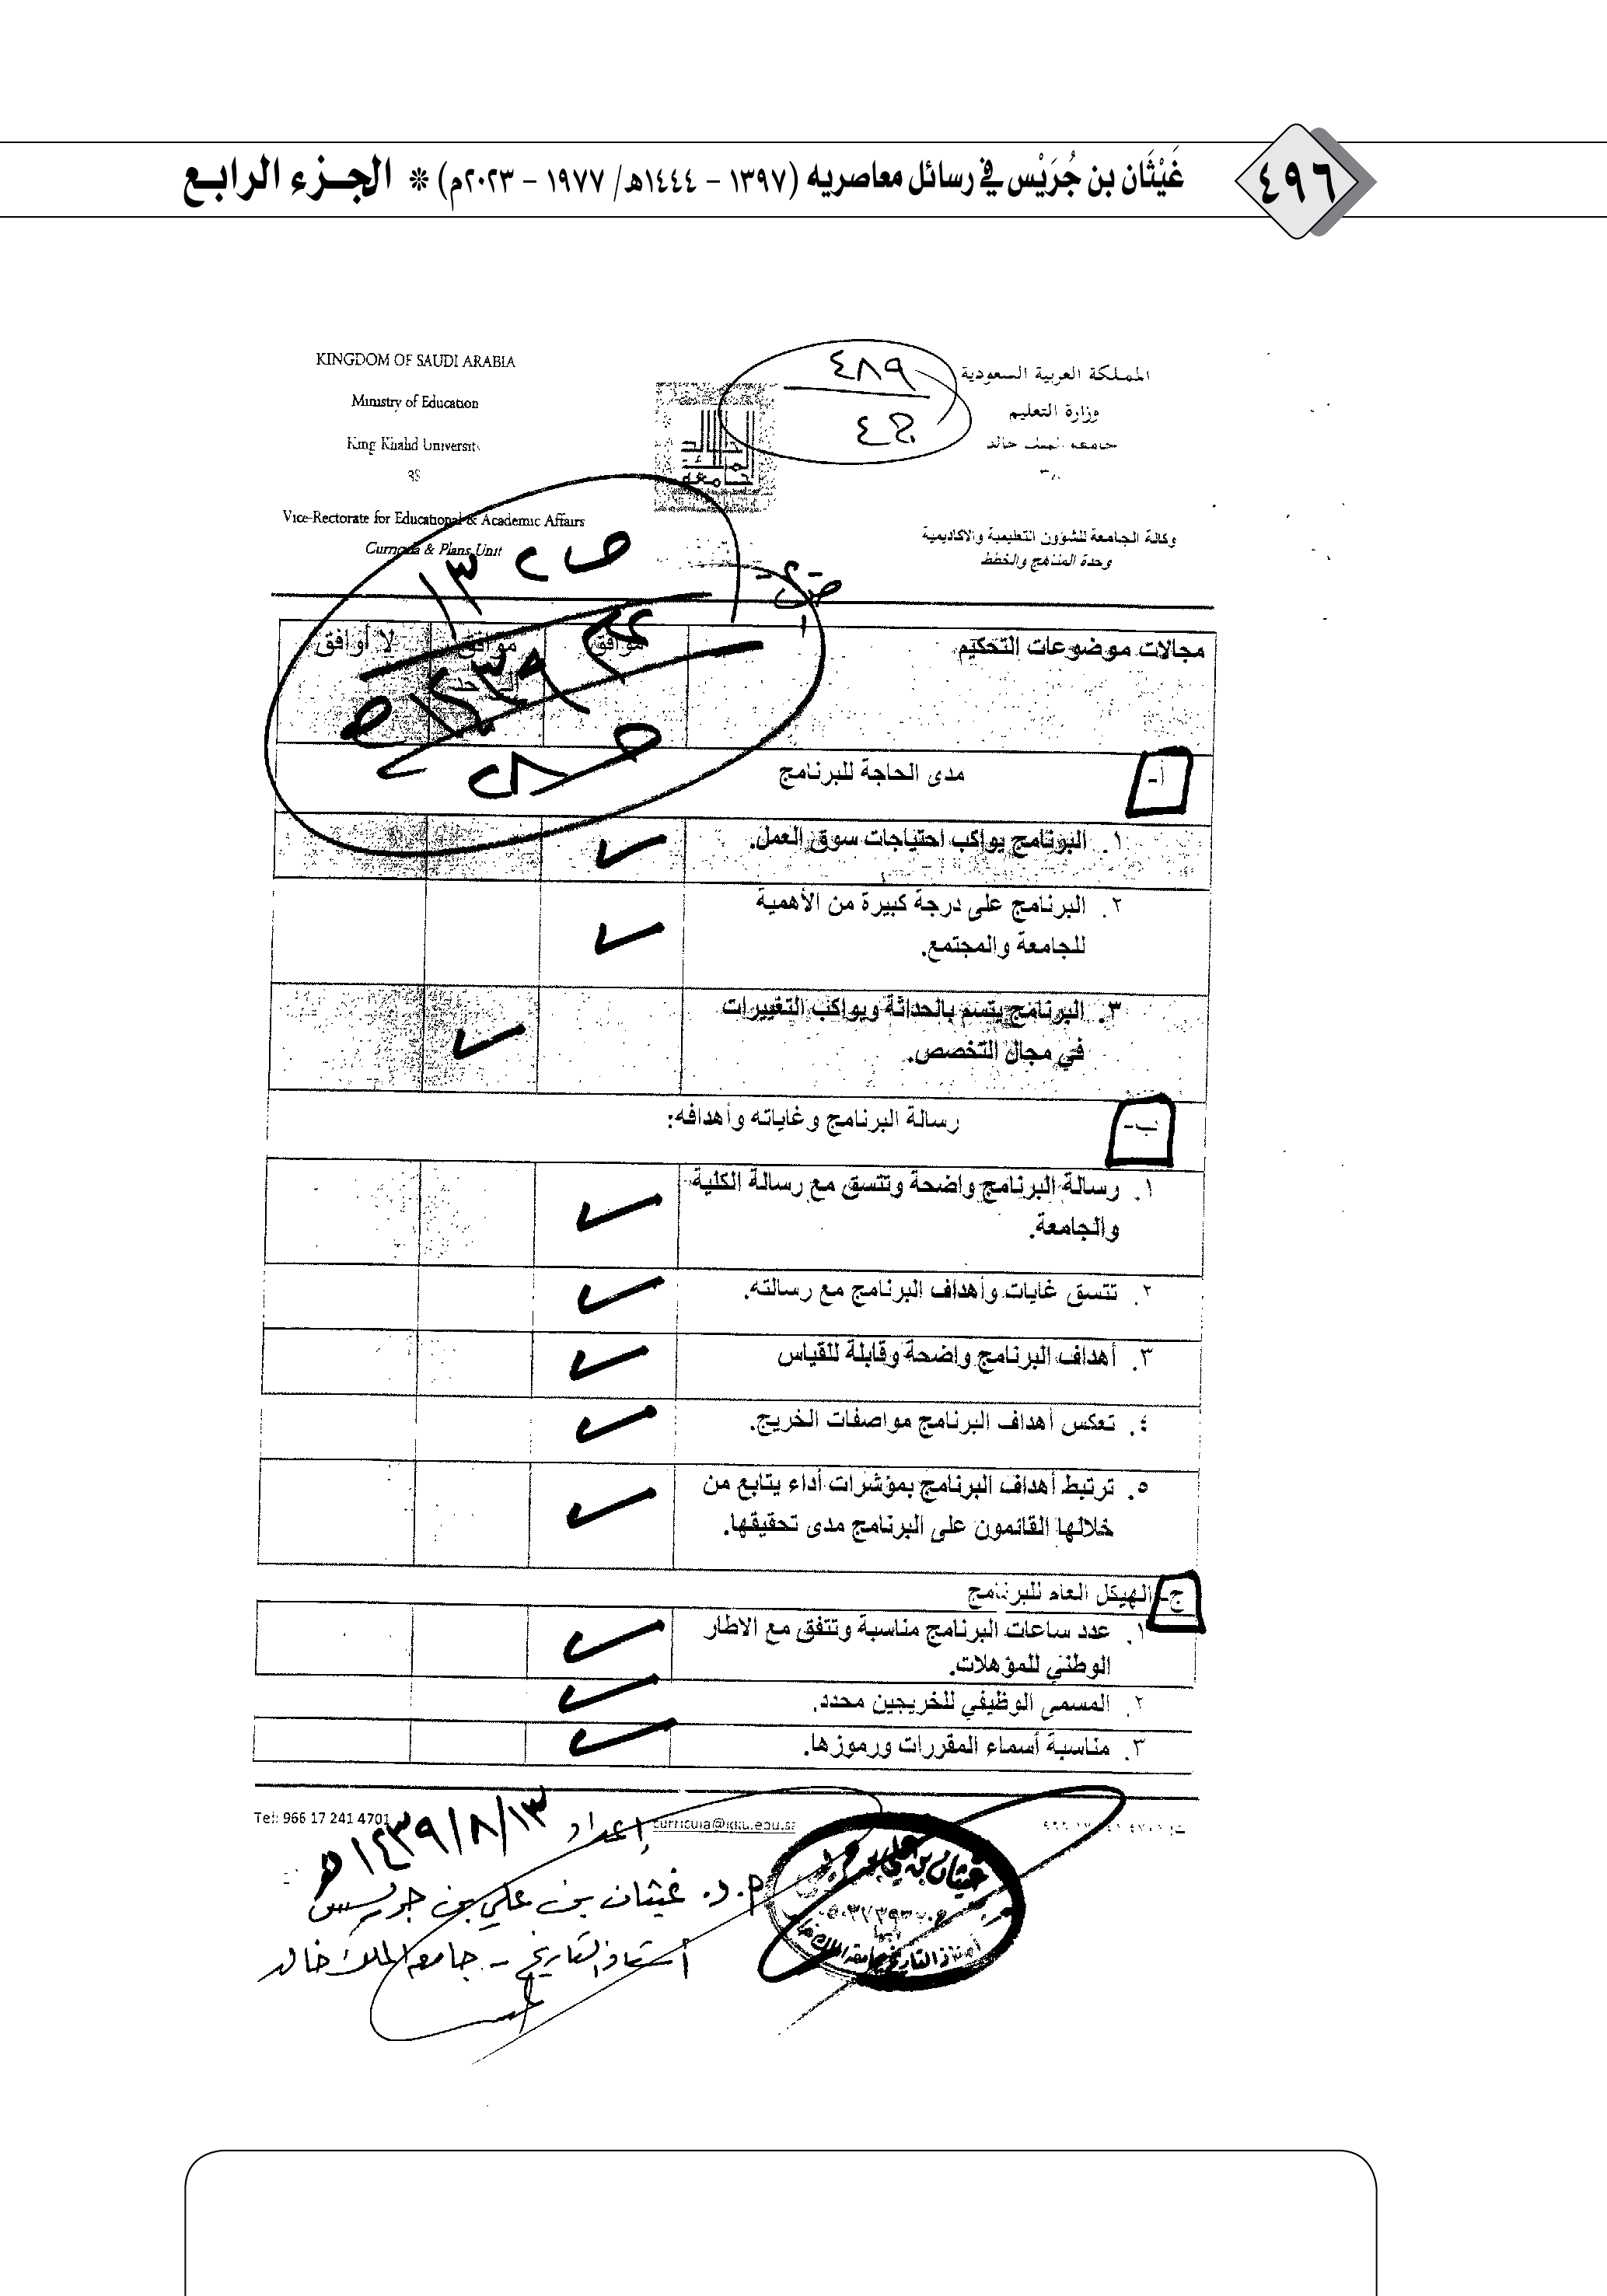 ٤٩٦
غَيْثَان بن جُرَيْس في رسائل معاصريه (١٣٩٧ - ١٤٤٤هـ/ ١٩٧٧ - ٢٠٢٣م) * الجزء الرابع
KINGDOM OF SAUDI ARABIA
Ministry of Education
King Khalid University
Vice-Rectorate for Educational & Academic Affairs
Curricula & Plans Unit
٤٨٩
المملكة العربية السعودية
وزارة التعليم
جامعة الملك خالد
وكالة الجامعة للشؤون التعليمية والاكاديمية
وحدة المناهج والخطط
مجالات موضوعات التحكيم
موافق
موافق
لا أوافق
أ-
مدى الحاجة للبرنامج
١. البرنامج يواكب احتياجات سوق العمل.
٢. البرنامج على درجة كبيرة من الأهمية
للجامعة والمجتمع.
٣. البرنامج يتسم بالحداثة ويواكب التغييرات
في مجال التخصص.
ب-
رسالة البرنامج وغاياته وأهدافه:
١. رسالة البرنامج واضحة وتتسق مع رسالة الكلية
والجامعة.
٢. تتسق غايات وأهداف البرنامج مع رسالته.
٣. أهداف البرنامج واضحة وقابلة للقياس
٤. تعكس أهداف البرنامج مواصفات الخريج.
٥. ترتبط أهداف البرنامج بمؤشرات أداء يتابع من
خلالها القائمون على البرنامج مدى تحقيقها.
ج- الهيكل العام للبرنامج
١. عدد ساعات البرنامج مناسبة وتتفق مع الاطار
الوطني للمؤهلات.
٢. المسمى الوظيفي للخريجين محدد.
٣. مناسبة أسماء المقررات ورموزها.
Tel: 966 17 241 4701
curricula@kku.edu.sa
إعداد
١٤٣٩/٨/١٣هـ
أ.د. غيثان بن علي بن جريس
أستاذ التاريخ - جامعة الملك خالد
غيثان بن علي بن جريس
أستاذ التاريخ بجامعة الملك خالد